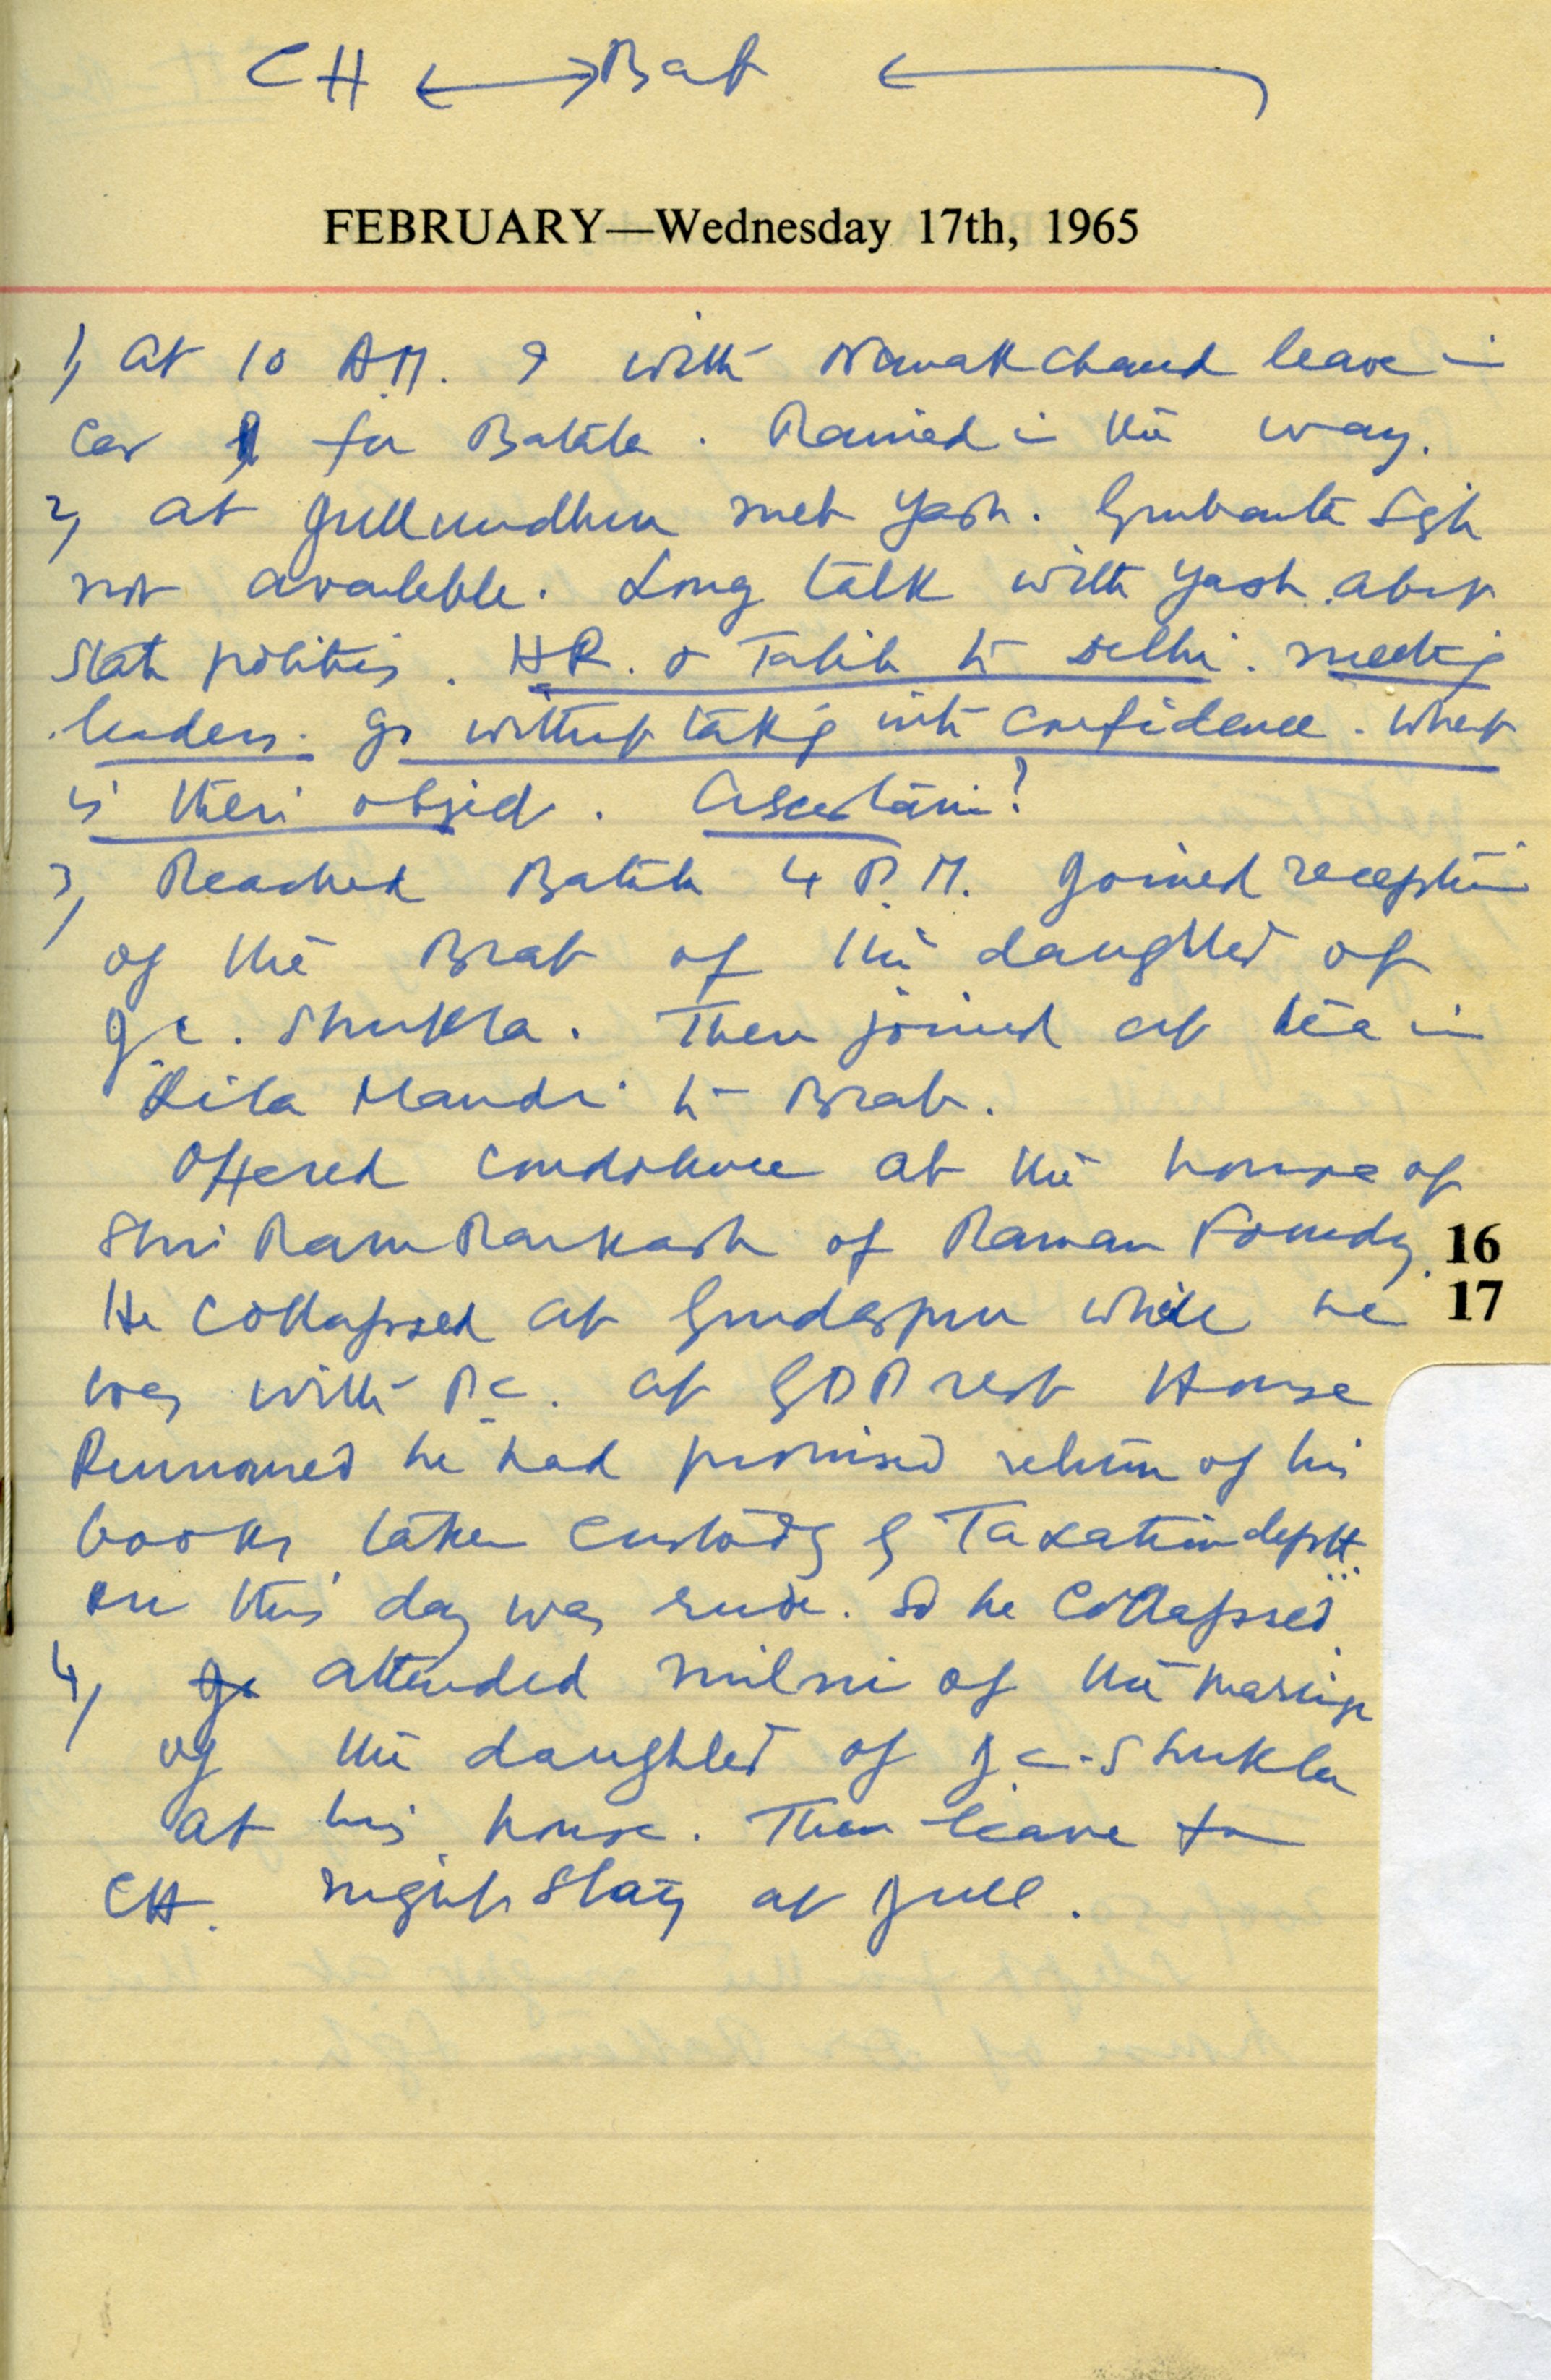 CH ↔ Bat ←
FEBRUARY—Wednesday 17th, 1965
1, At 10 AM. I with Nanak Chand leave in
Car for Batala. Rained in the way.
2, At Jullundhur met Yash. Gurbanta Sgh
not available. Long talk with Yash about
State politics. HR. & Talib to Delhi. meeting
leaders. Go without taking into confidence. What
is their object. Ascertain?
3, Reached Batala 4 P.M. Joined reception
of the Brat of the daughter of
J.C. Shukla. Then joined at tea in
Kila Mandi to Brat.
Offered condolence at the house of
Shri Ram Parkash of Raman Foundry. 16
He collapsed at Gurdaspur while he 17
was with P.C. at GDP rest House
Rumoured he had promised return of his
books taken custody by Taxation deptt.
on this day was rude. So he collapsed.
4, attended milni of the marriage
of the daughter of J.C. Shukla
at his house. Then leave for
CH. night stay at Jull.